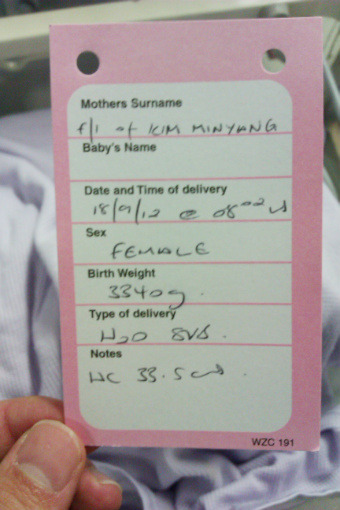 Mothers Surname
f/1 of KIM MINYANG
Baby's Name
Date and Time of delivery
18/9/12 @ 08⁰² u
Sex
FEMALE
Birth Weight
3340g.
Type of delivery
H2O SVD.
Notes
HC 33.5 cms.
WZC 191